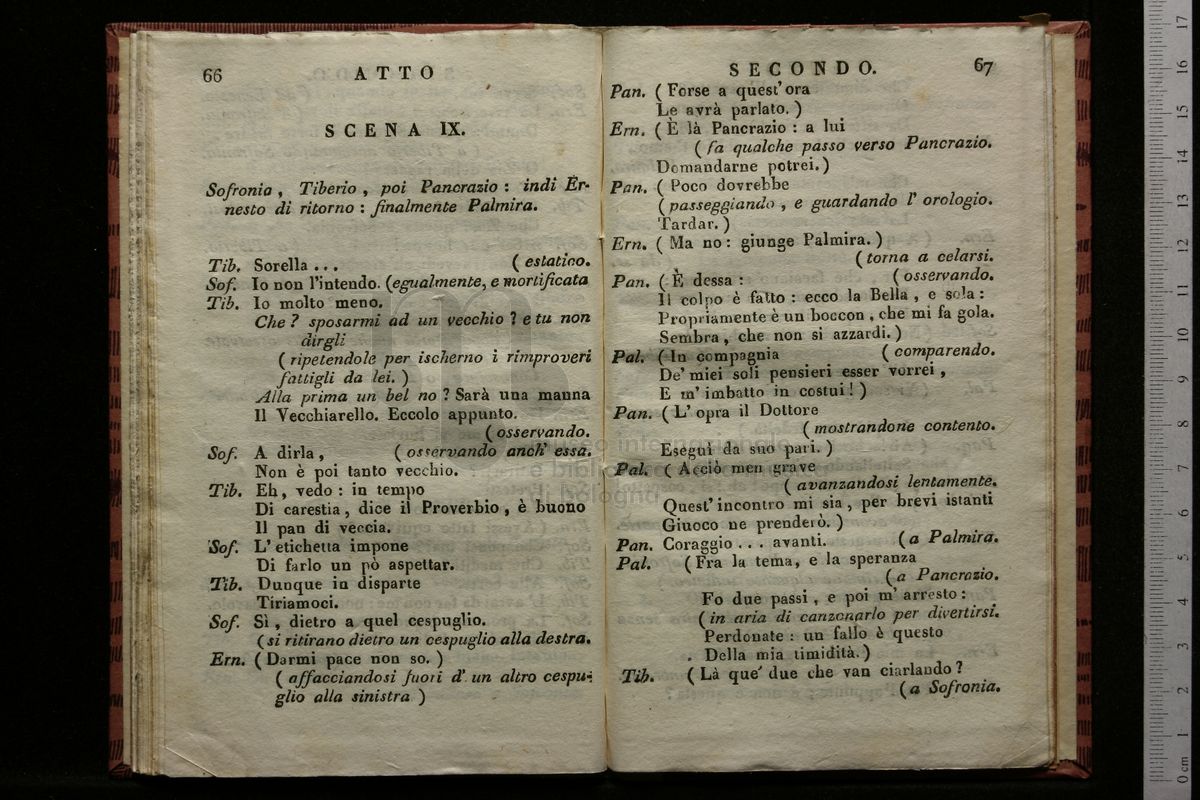 66 ATTO
SCENA IX.
Sofronia, Tiberio, poi Pancrazio: indi Er-
nesto di ritorno: finalmente Palmira.
Tib. Sorella... (estatico.
Sof. Io non l'intendo. (egualmente, e mortificata
Tib. Io molto meno.
Che? sposarmi ad un vecchio? e tu non
dirgli
(ripetendole per ischerno i rimproveri
fattigli da lei.)
Alla prima un bel no? Sarà una manna
Il Vecchiarello. Eccolo appunto.
(osservando.
Sof. A dirla, (osservando anch' essa.
Non è poi tanto vecchio.
Tib. Eh, vedo: in tempo
Di carestia, dice il Proverbio, è buono
Il pan di veccia.
Sof. L' etichetta impone
Di farlo un pò aspettar.
Tib. Dunque in disparte
Tiriamoci.
Sof. Sì, dietro a quel cespuglio.
(si ritirano dietro un cespuglio alla destra.
Ern. (Darmi pace non so.)
(affacciandosi fuori d' un altro cespu-
glio alla sinistra)
SECONDO. 67
Pan. (Forse a quest' ora
Le avrà parlato.)
Ern. (È là Pancrazio: a lui
(fa qualche passo verso Pancrazio.
Domandarne potrei.)
Pan. (Poco dovrebbe
(passeggiando, e guardando l' orologio.
Tardar.)
Ern. (Ma no: giunge Palmira.)
(torna a celarsi.
Pan. (È dessa: (osservando.
Il colpo è fatto: ecco la Bella, e sola:
Propriamente è un boccon, che mi fa gola.
Sembra, che non si azzardi.)
Pal. (In compagnia (comparendo.
De' miei soli pensieri esser vorrei,
E m' imbatto in costui!)
Pan. (L' opra il Dottore
(mostrandone contento.
Eseguì da suo pari.)
Pal. (Acciò men grave
(avanzandosi lentamente.
Quest' incontro mi sia, per brevi istanti
Giuoco ne prenderò.)
Pan. Coraggio... avanti. (a Palmira.
Pal. (Fra la tema, e la speranza
(a Pancrazio.
Fo due passi, e poi m' arresto:
(in aria di canzonarlo per divertirsi.
Perdonate: un fallo è questo
Della mia timidità.)
Tib. (Là que' due che van ciarlando?
(a Sofronia.
museo internazionale
e biblioteca
di bologna
0 cm 1 2 3 4 5 6 7 8 9 10 11 12 13 14 15 16 17